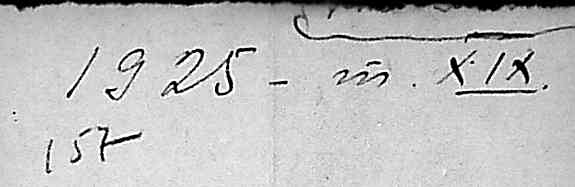 1925 - т. XIX.
157